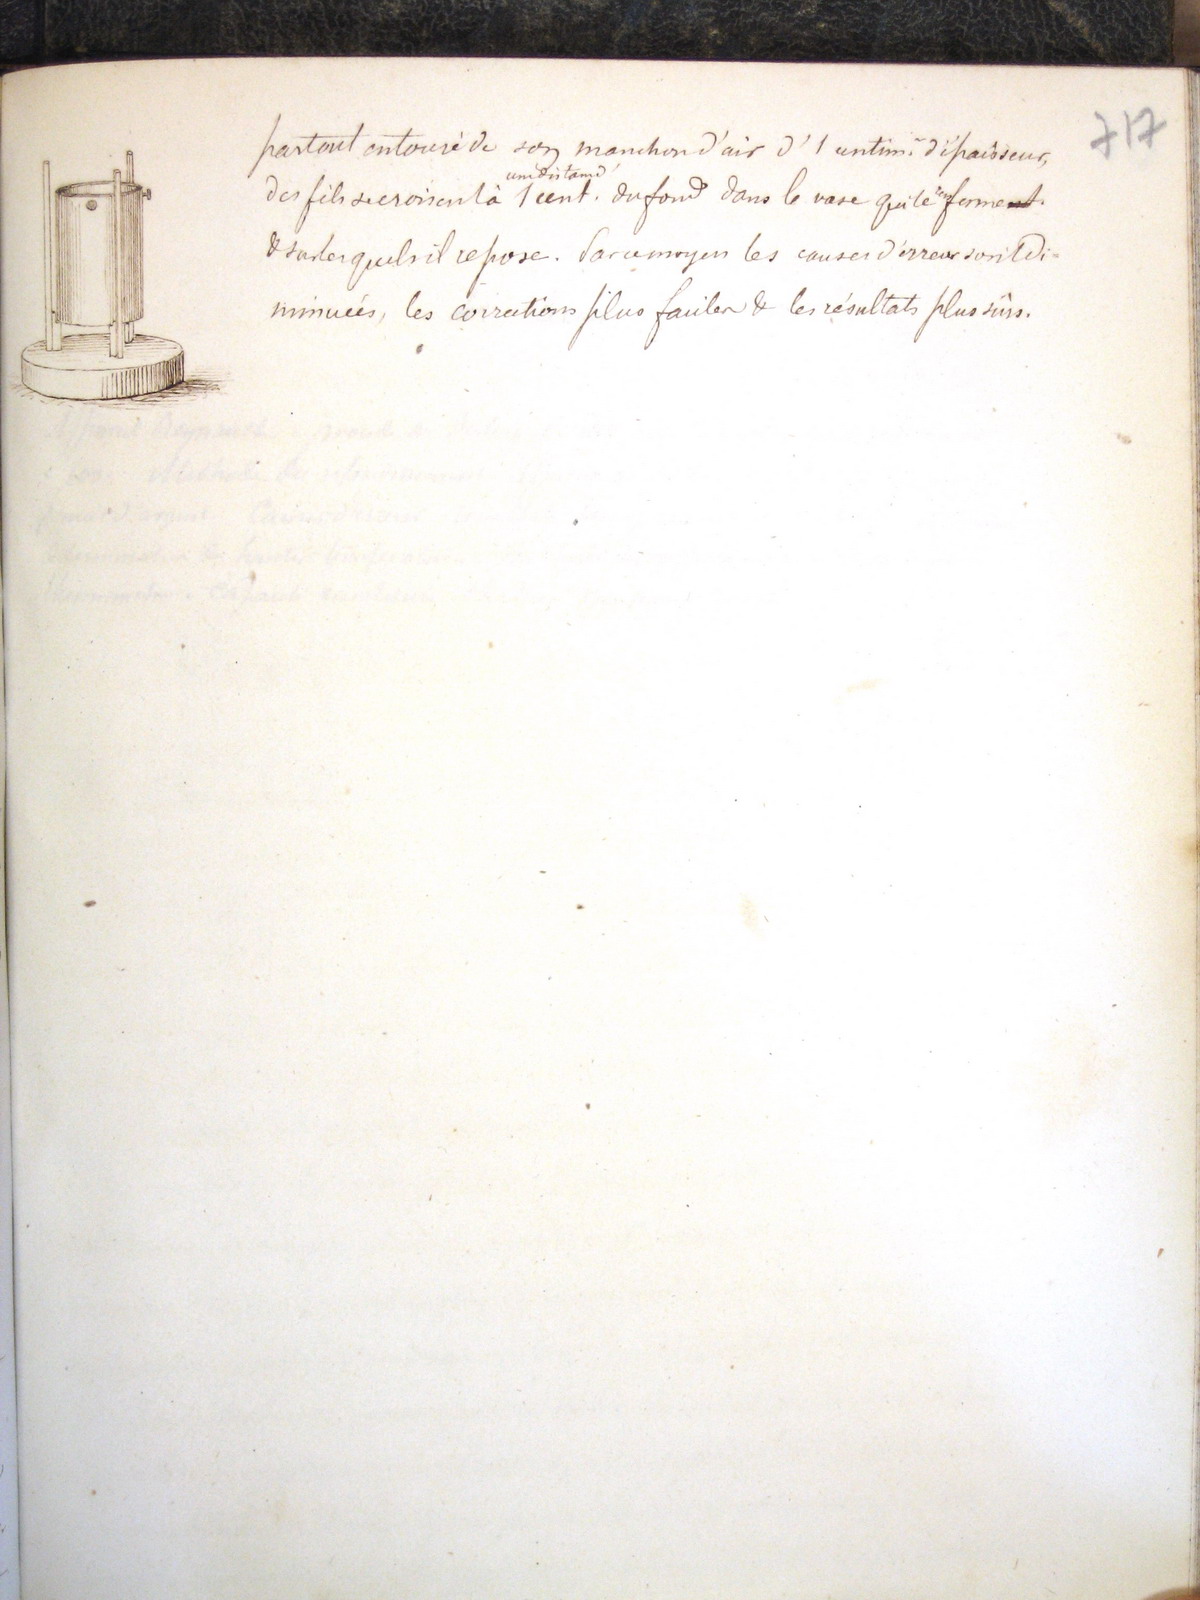 717
partout entouré de son manchon d'air d'1 centim. d'épaisseur,
une distance
des fils se croisent à 1 cent. du fond dans le vase qui le renferme
& sur lesquels il repose. Par ce moyen les causes d'erreur sont di-
minuées, les corrections plus faciles & les résultats plus sûrs.